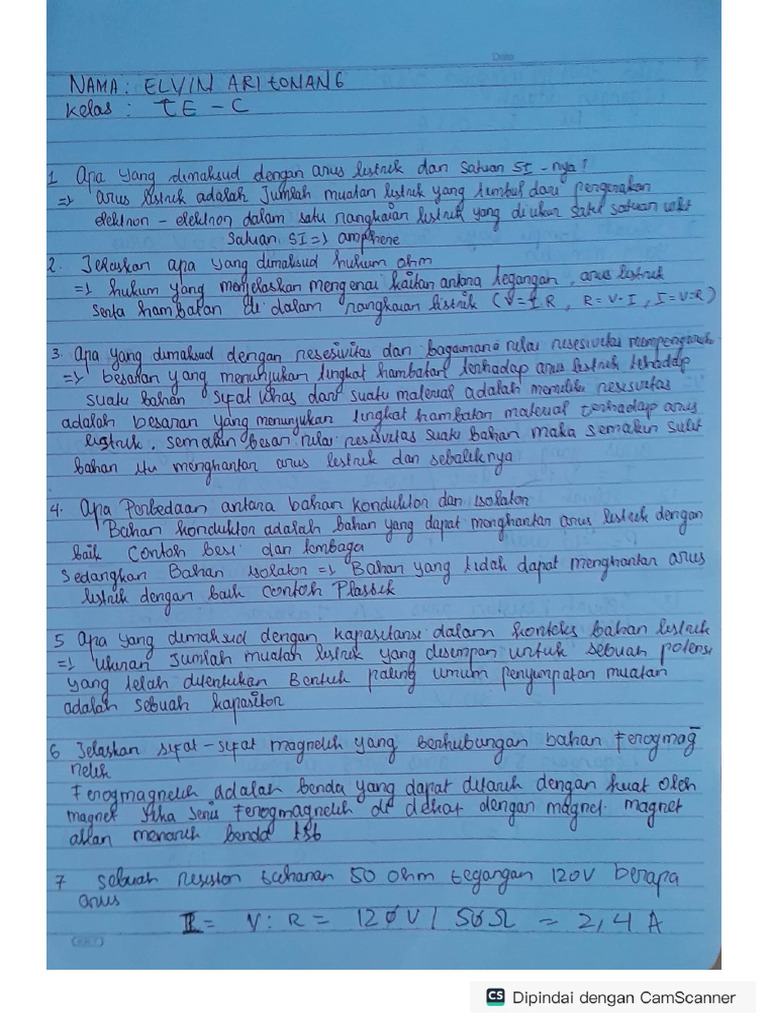 Date
NAMA : ELVIN ARITONANG
Kelas : TE - C
1 Apa yang dimaksud dengan arus listrik dan satuan SI - nya ?
=> arus listrik adalah Jumlah muatan listrik yang timbul dari pergerakan
elektron - elektron dalam satu rangkaian listrik yang di ukur satuan
Satuan SI => amphere
2. Jelaskan apa yang dimaksud hukum ohm
=> hukum yang menjelaskan mengenai kaitan antara tegangan, arus listrik
serta hambatan di dalam rangkaian listrik (V=I R, R = V·I, I=V=R)
3. Apa yang dimaksud dengan resesivitas dan bagamana nilai resesivitas mempengaruhi
=> besaran yang menunjukan tingkat hambatan terhadap arus listrik tehadap
suatu bahan sifat khas dari suatu material adalah memiliki resesivitas
adalah besaran yang menunjukan tingkat hambatan material terhadap arus
listrik. semakin besar nilai resisivitas suatu bahan maka semakin sulit
bahan itu menghantar arus listrik dan sebaliknya
4. Apa Perbedaan antara bahan konduktor dan isolator
Bahan konduktor adalah bahan yang dapat menghantar arus listrik dengan
baik Contoh besi dan tembaga
Sedangkan Bahan isolator => Bahan yang tidah dapat menghantar arus
listrik dengan baik contoh Plastik
5 Apa yang dimaksud dengan kapasitansi dalam konteks bahan listrik
=> Ukuran Jumlah muatan listrik yang disimpan untuk sebuah potensi
yang telah ditentukan Bentuk paling umum penyimpatan muatan
adalah sebuah kapasitor
6 Jelaskan sifat - sifat magnetik yang berhubungan bahan Ferogmag
netik
Ferogmagnetik adalah benda yang dapat ditarik dengan kuat oleh
magnet Jika Ferogmagnetik di dekat dengan magnet. magnet
akan menarik benda tsb
7 sebuah resistor tahanan 50 ohm tegangan 120V berapa
arus
I = V : R = 120V / 50Ω = 2,4 A
CS Dipindai dengan CamScanner